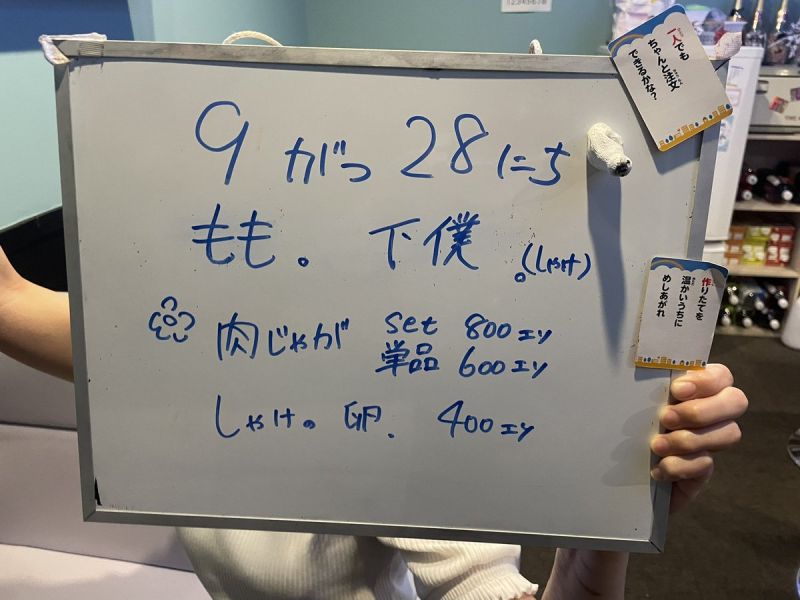 9がつ28にち
もも。下僕。(しゃけ)
肉じゃが set 800エン
単品 600エン
しゃけの卵. 400エン
一人でも
ちゃんと注文
できるかな?
作りたてを
温かいうちに
めしあがれ